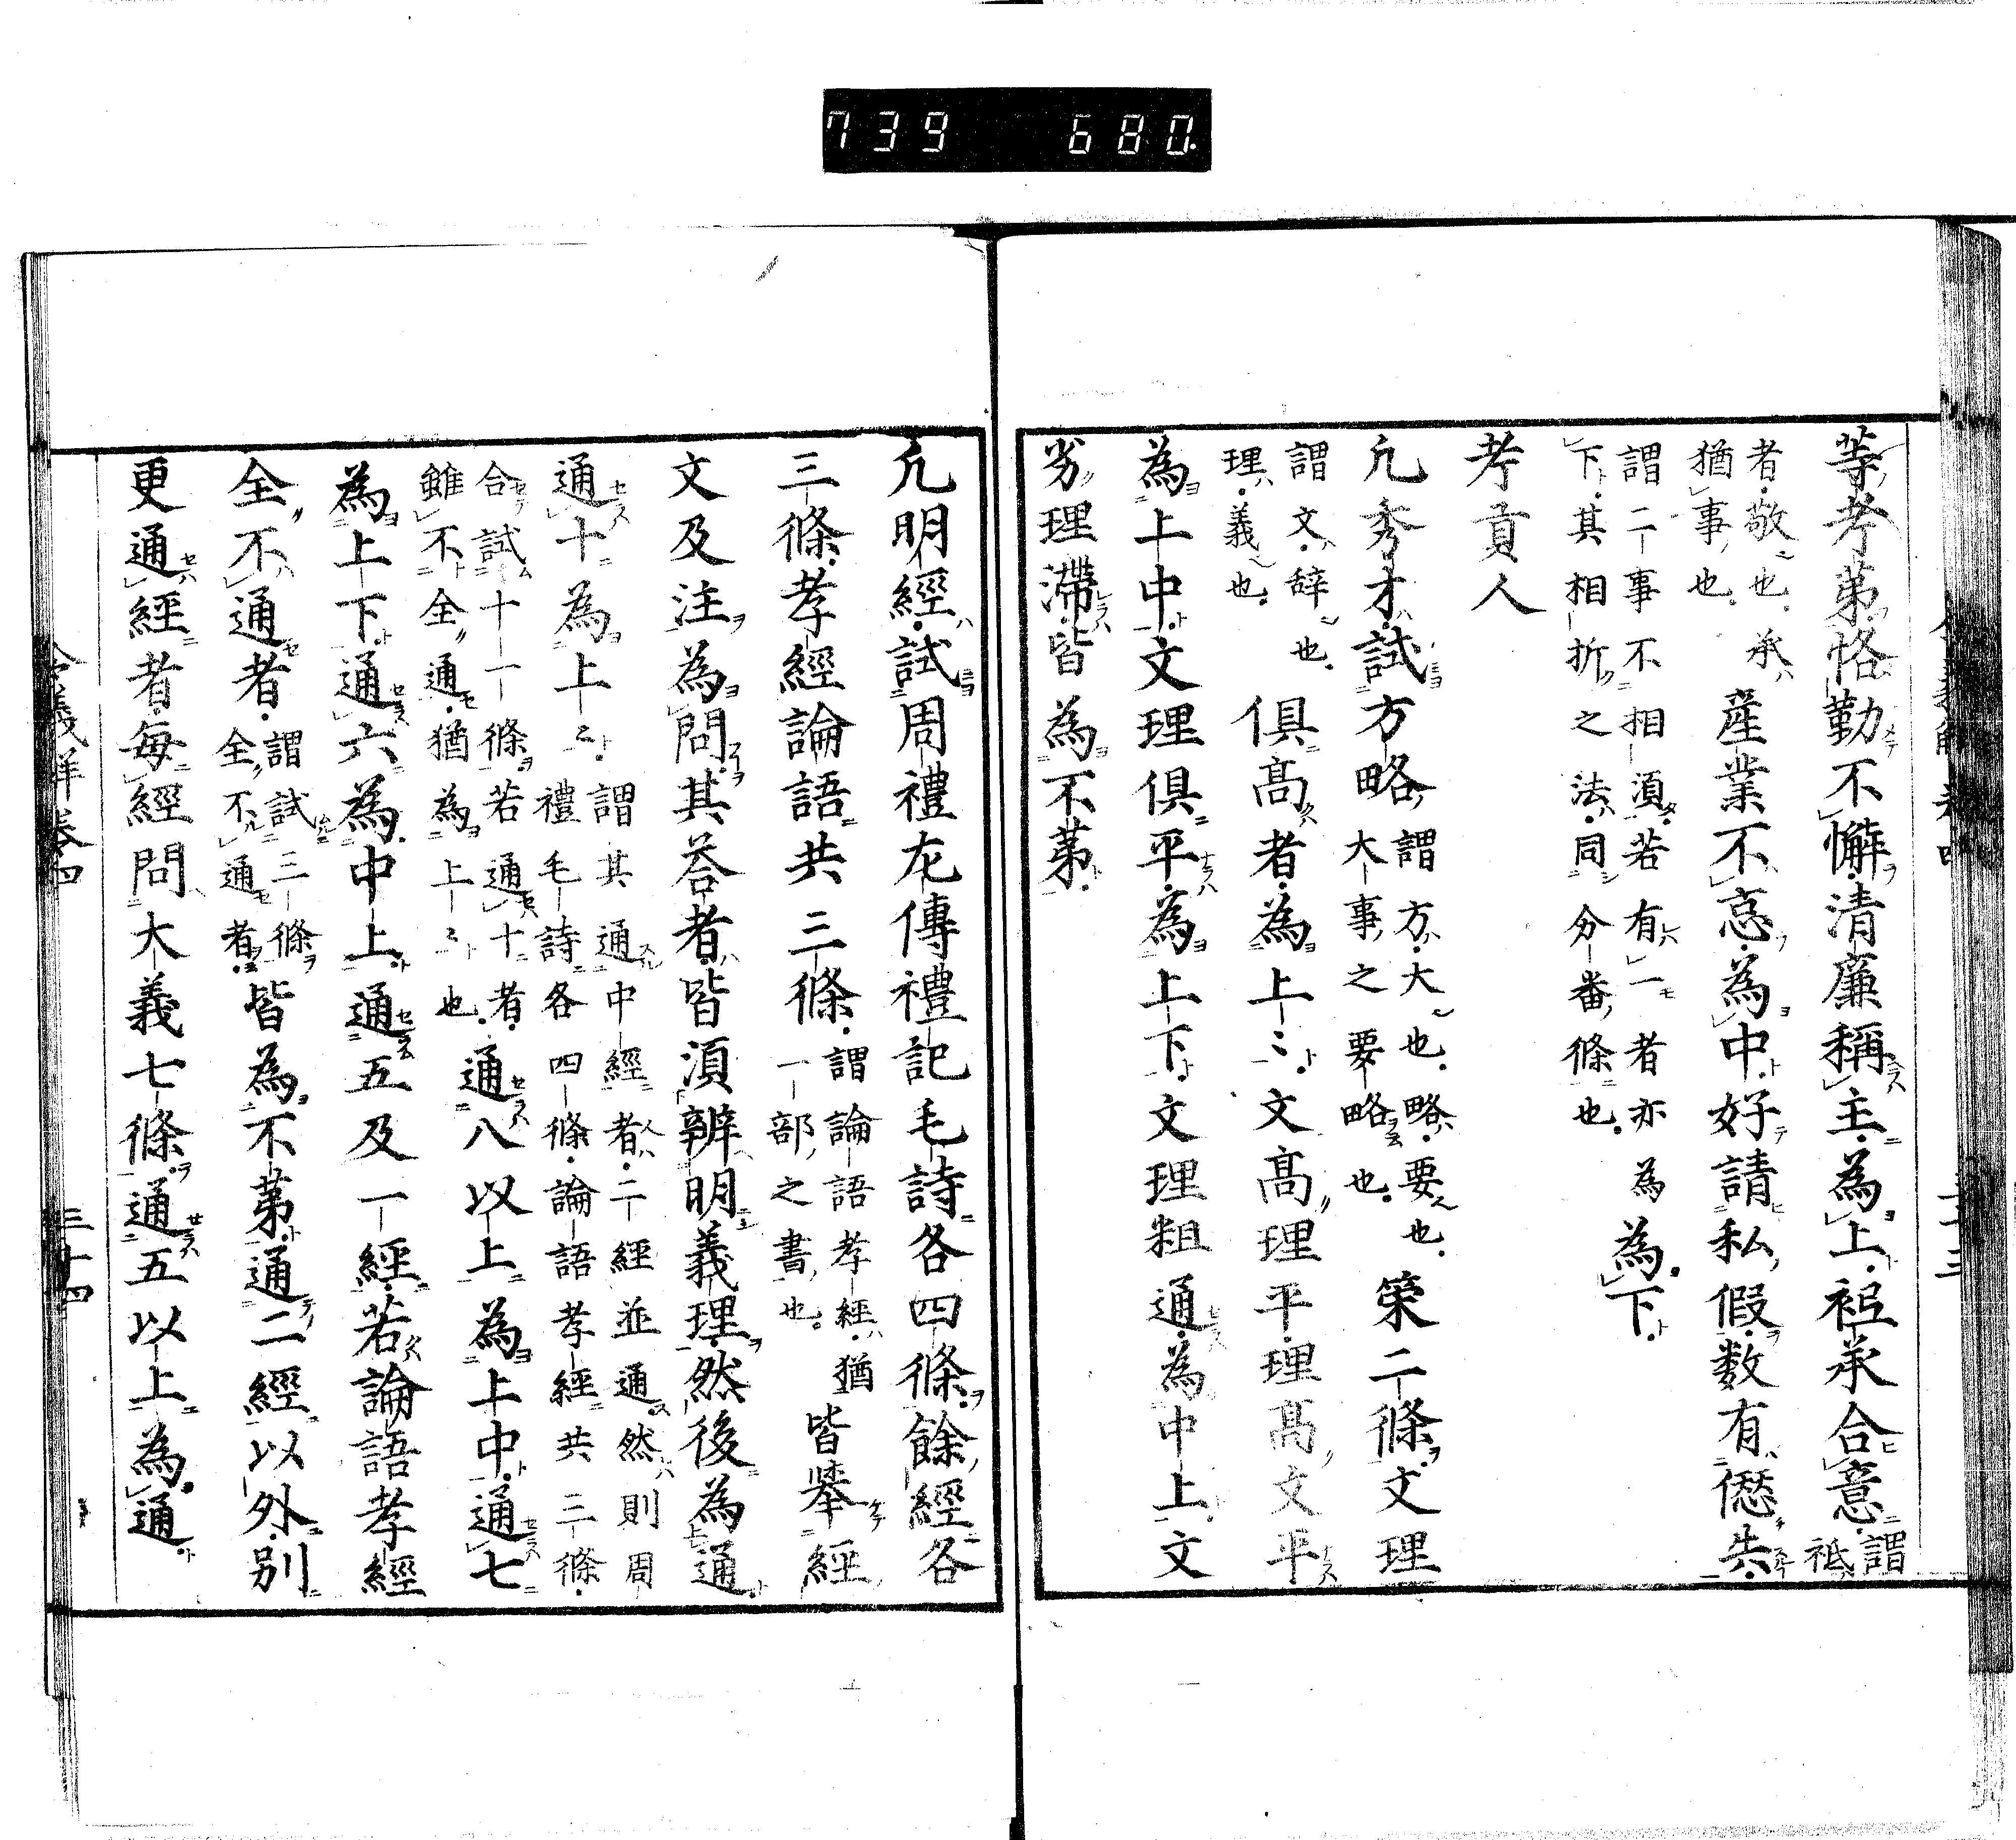 739 680.
等考第恪勤不懈清廉稱主為上祗承合意謂祗
者敬也承
猶事也
産業不怠為中好請私假数有愆失
謂二事不相須若有一者亦為
下其相折之法同分番條也
為下
考貢人
凢秀才試方略謂方大也略要也
大事之要略也
策二條文理
謂文辞也
理義也
俱髙者為上〻文髙理平理髙文平
為上中文理俱平為上下文理粗通為中上文
劣理滞皆為不第
凢明經試周禮左傳禮記毛詩各四條餘經各
三條孝經論語共三條謂論語孝經猶
一部之書也
皆舉經
文及注為問其荅者皆湏辨明義理然後為通
通十為上〻謂其通中經者二經並通然則周
禮毛詩各四條論語孝經共三條
合試十一條若通十者
雖不全通猶為上〻也
通八以上為上中通七
為上下通六為中上通五及一經若論語孝經
全不通者謂試三條
全不通者
皆為不第通二經以外別
更通經者每經問大義七條通五以上為通
令義解卷四 三十四